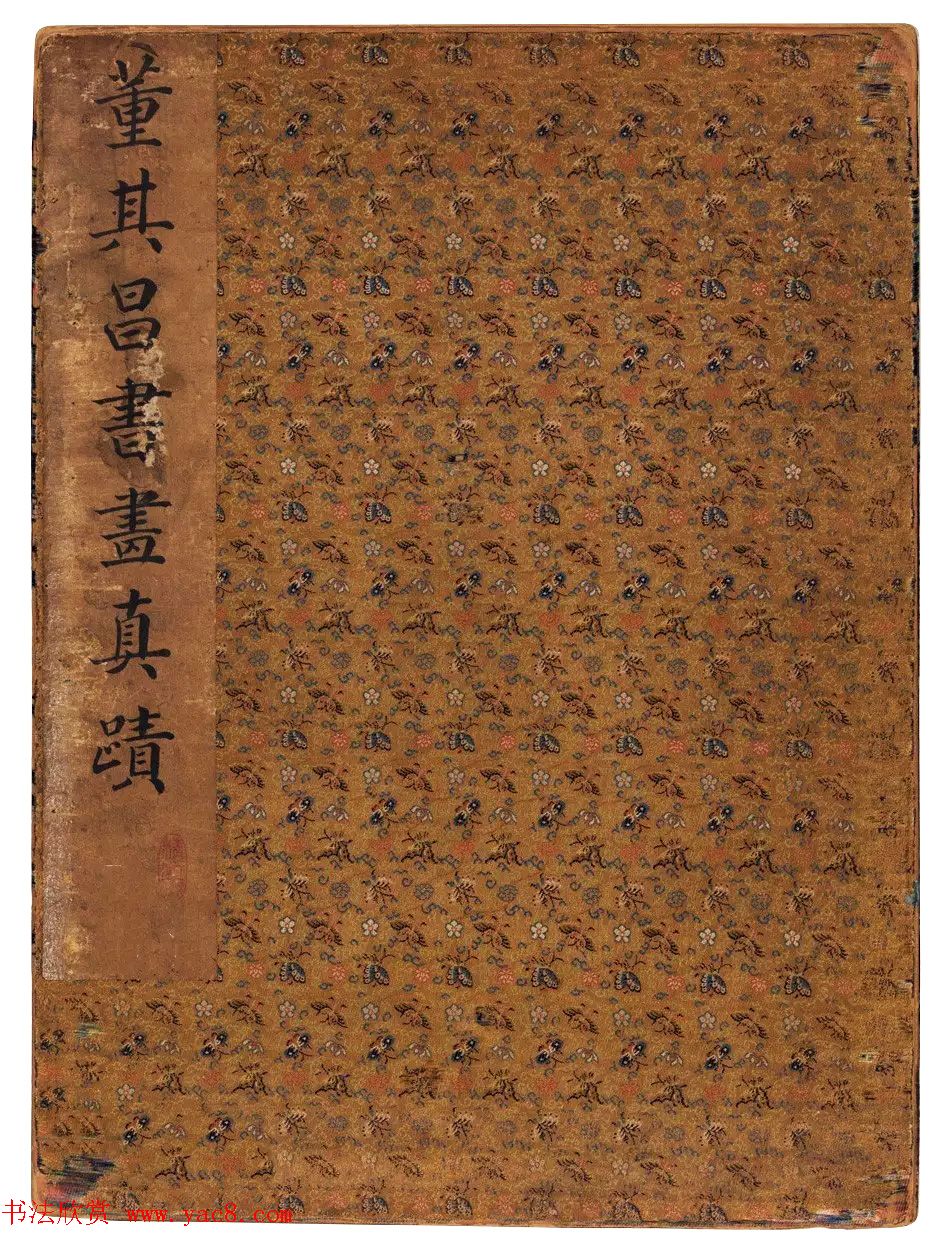 董其昌書畫真蹟
书法欣赏 www.yac8.com